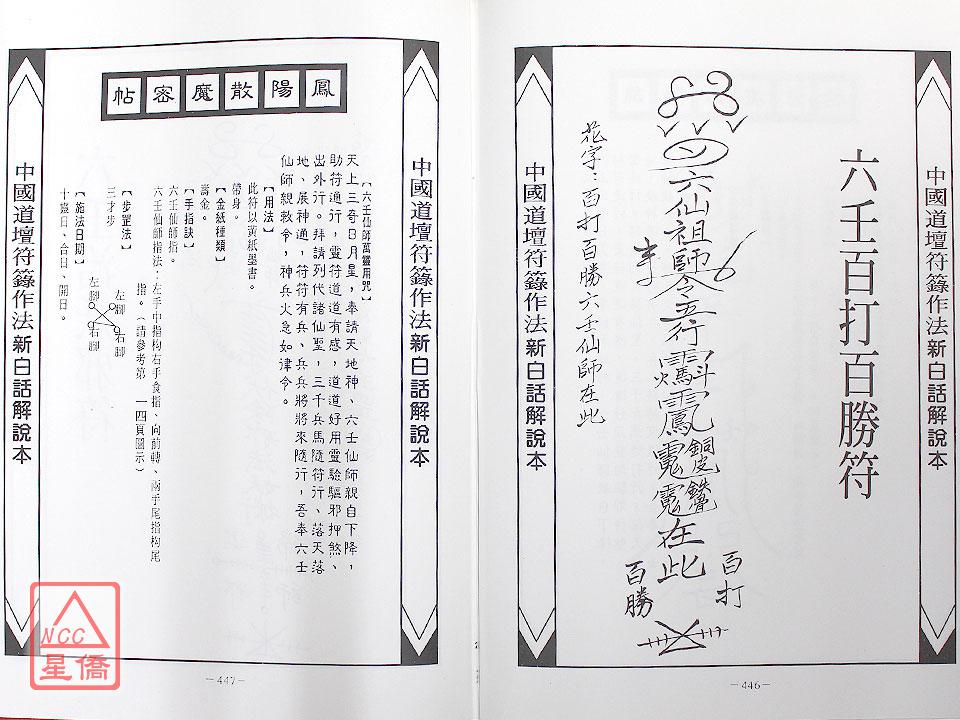 中國道壇符籙作法新白話解說本
六壬百打百勝符
六仙祖師令五行
銅皮鐵
在此
百打
百勝
花字：百打百勝六壬仙師在此
中國道壇符籙作法新白話解說本
－446－
中國道壇符籙作法新白話解說本
鳳陽散魔密帖
【六壬仙師萬靈用咒】
天上三奇日月星，奉請天地神、六壬仙師親自下降，
助符通行，靈符道道有感，道道好用靈驗驅邪押煞、
出外行。拜請列代諸仙聖，三千兵馬隨符行、落天落
地、展神通，符符有兵、兵兵將將來隨行，吾奉六壬
仙師親敕令，神兵火急如律令。
【用法】
此符以黃紙墨書。
帶身。
【金紙種類】
壽金。
【手指訣】
六壬仙師指。
六壬仙師指法：左手中指构右手食指、向前轉、兩手尾指构尾
指。（請參考第一四頁圖示）
【步罡法】
三才步
左腳
右腳
左腳
右腳
【施法日期】
十靈日、合日、開日。
中國道壇符籙作法新白話解說本
－447－
NCC
星僑